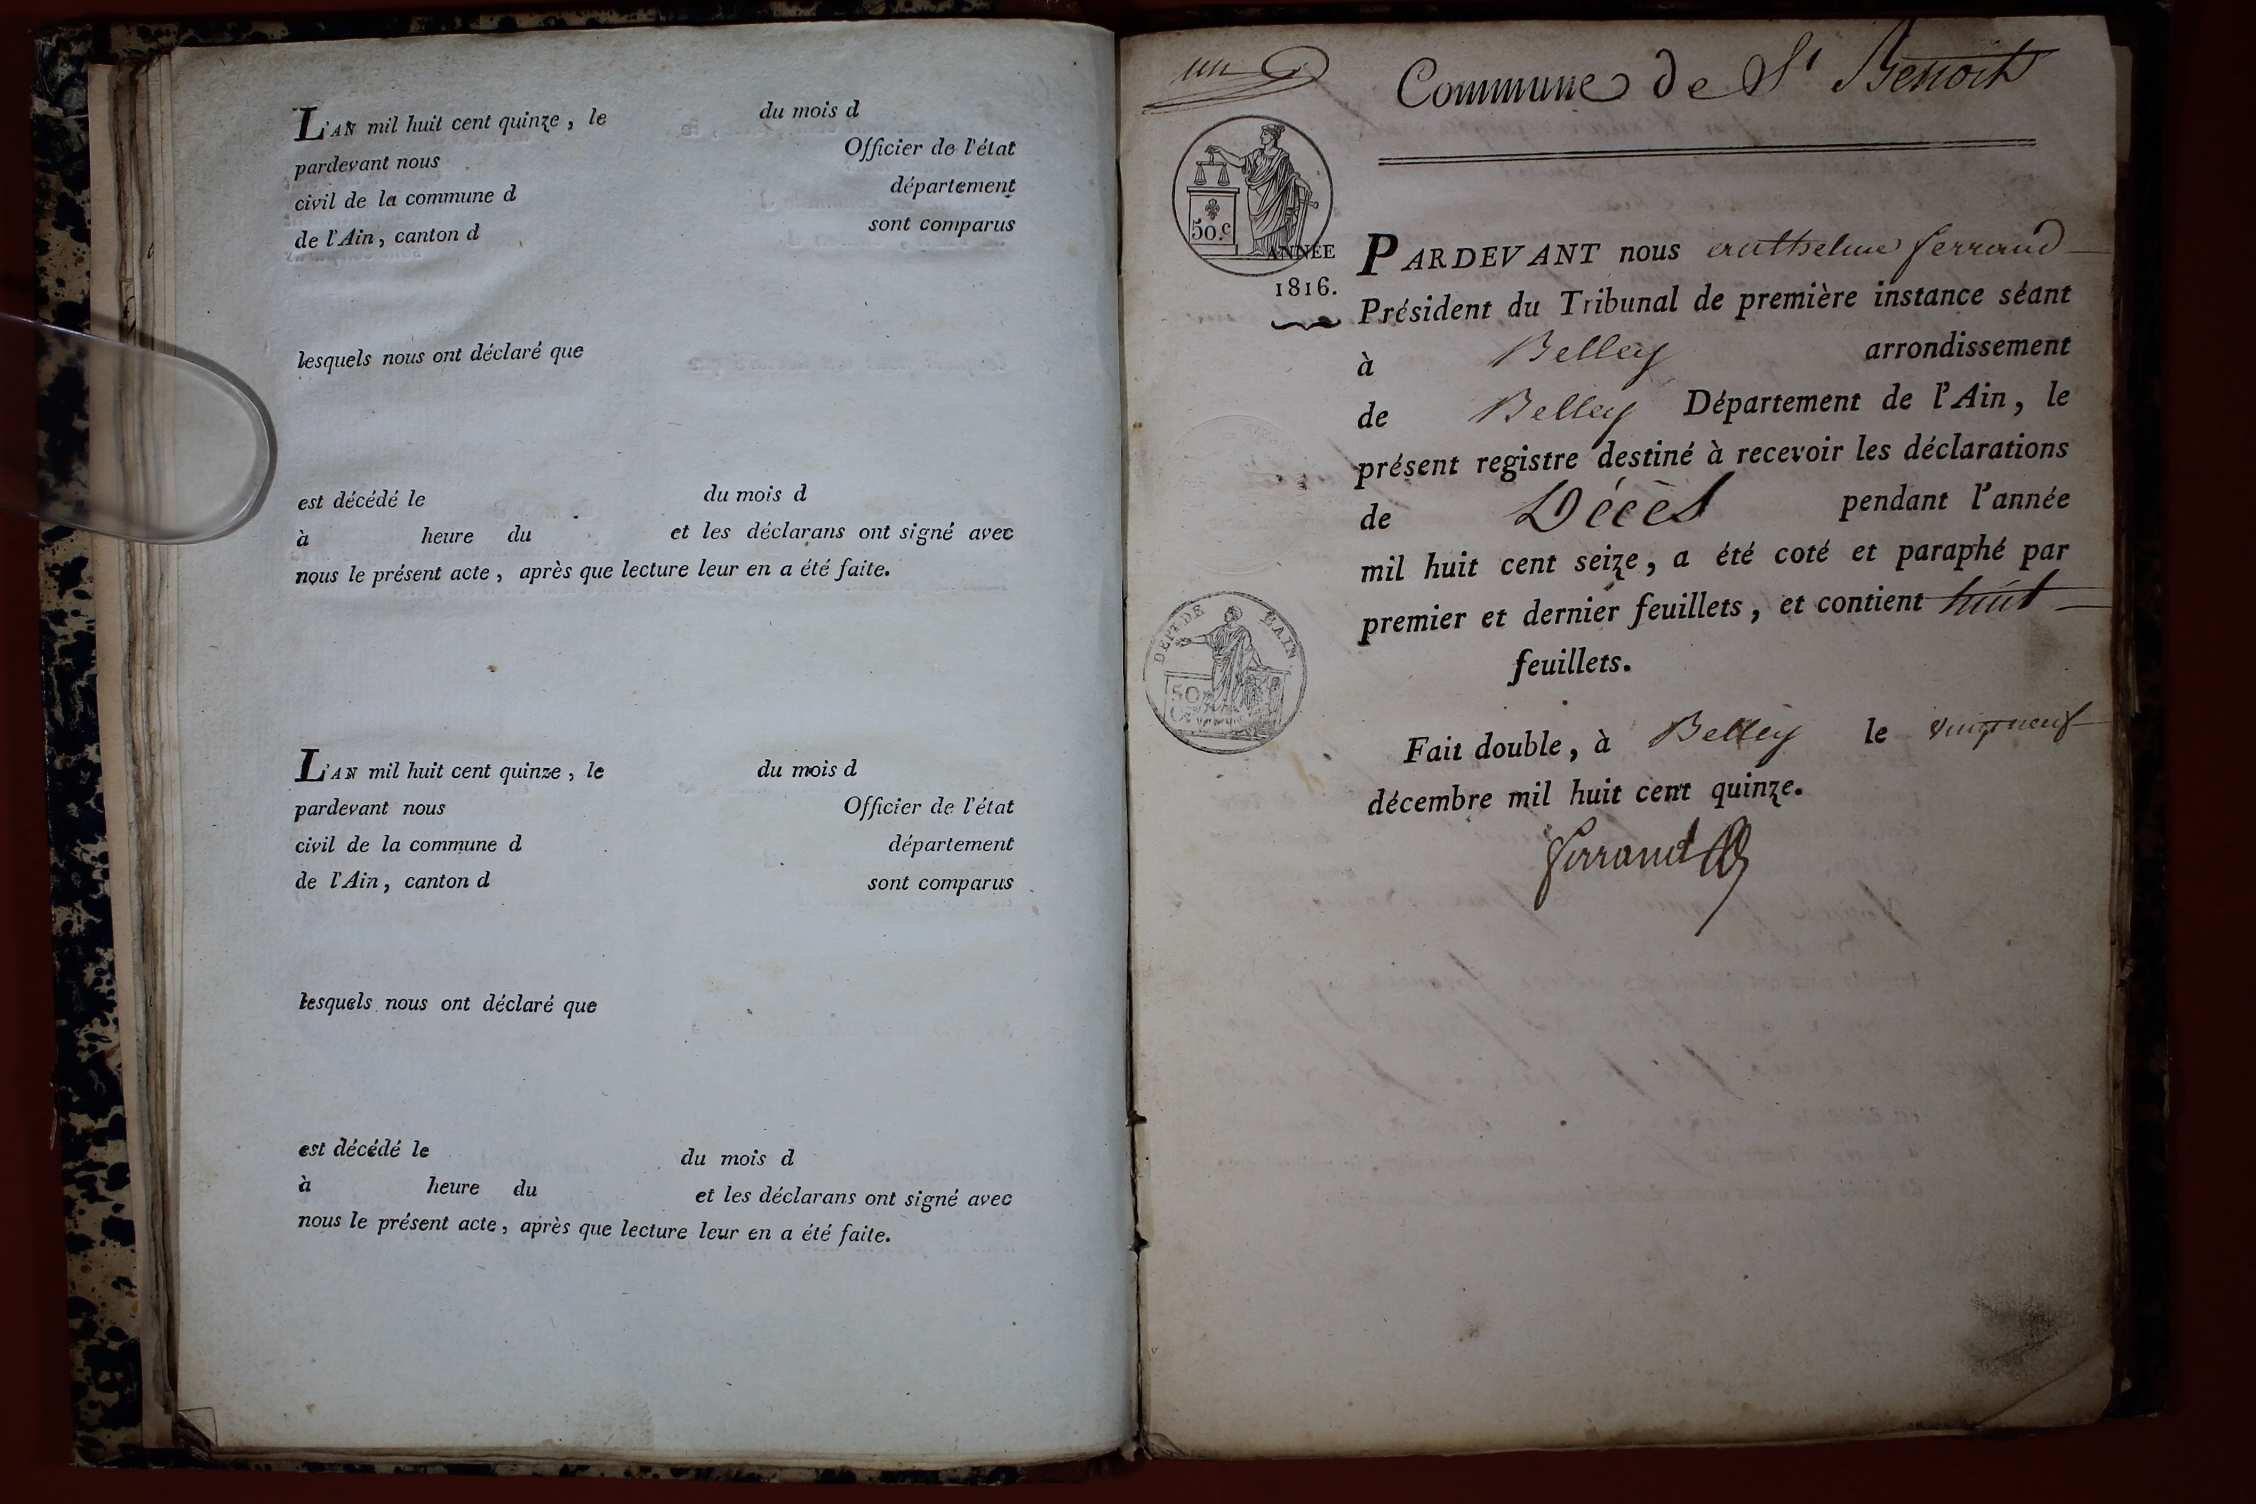 L'AN mil huit cent quinze, le du mois d
pardevant nous Officier de l'état
civil de la commune d département
de l'Ain, canton d sont comparus
lesquels nous ont déclaré que
est décédé le du mois d
à heure du et les déclarans ont signé avec
nous le présent acte, après que lecture leur en a été faite.
L'AN mil huit cent quinze, le du mois d
pardevant nous Officier de l'état
civil de la commune d département
de l'Ain, canton d sont comparus
lesquels nous ont déclaré que
est décédé le du mois d
à heure du et les déclarans ont signé avec
nous le présent acte, après que lecture leur en a été faite.
un
Commune de St Benoit
50.c
ANNÉE
1816.
PARDEVANT nous anthelme ferrand
Président du Tribunal de première instance séant
à Belley arrondissement
de Belley Département de l'Ain, le
présent registre destiné à recevoir les déclarations
de Décès pendant l'année
mil huit cent seize, a été coté et paraphé par
premier et dernier feuillets, et contient huit
feuillets.
DEPT. DE L'AIN
50
Fait double, à Belley le vingt neuf
décembre mil huit cent quinze.
ferrand